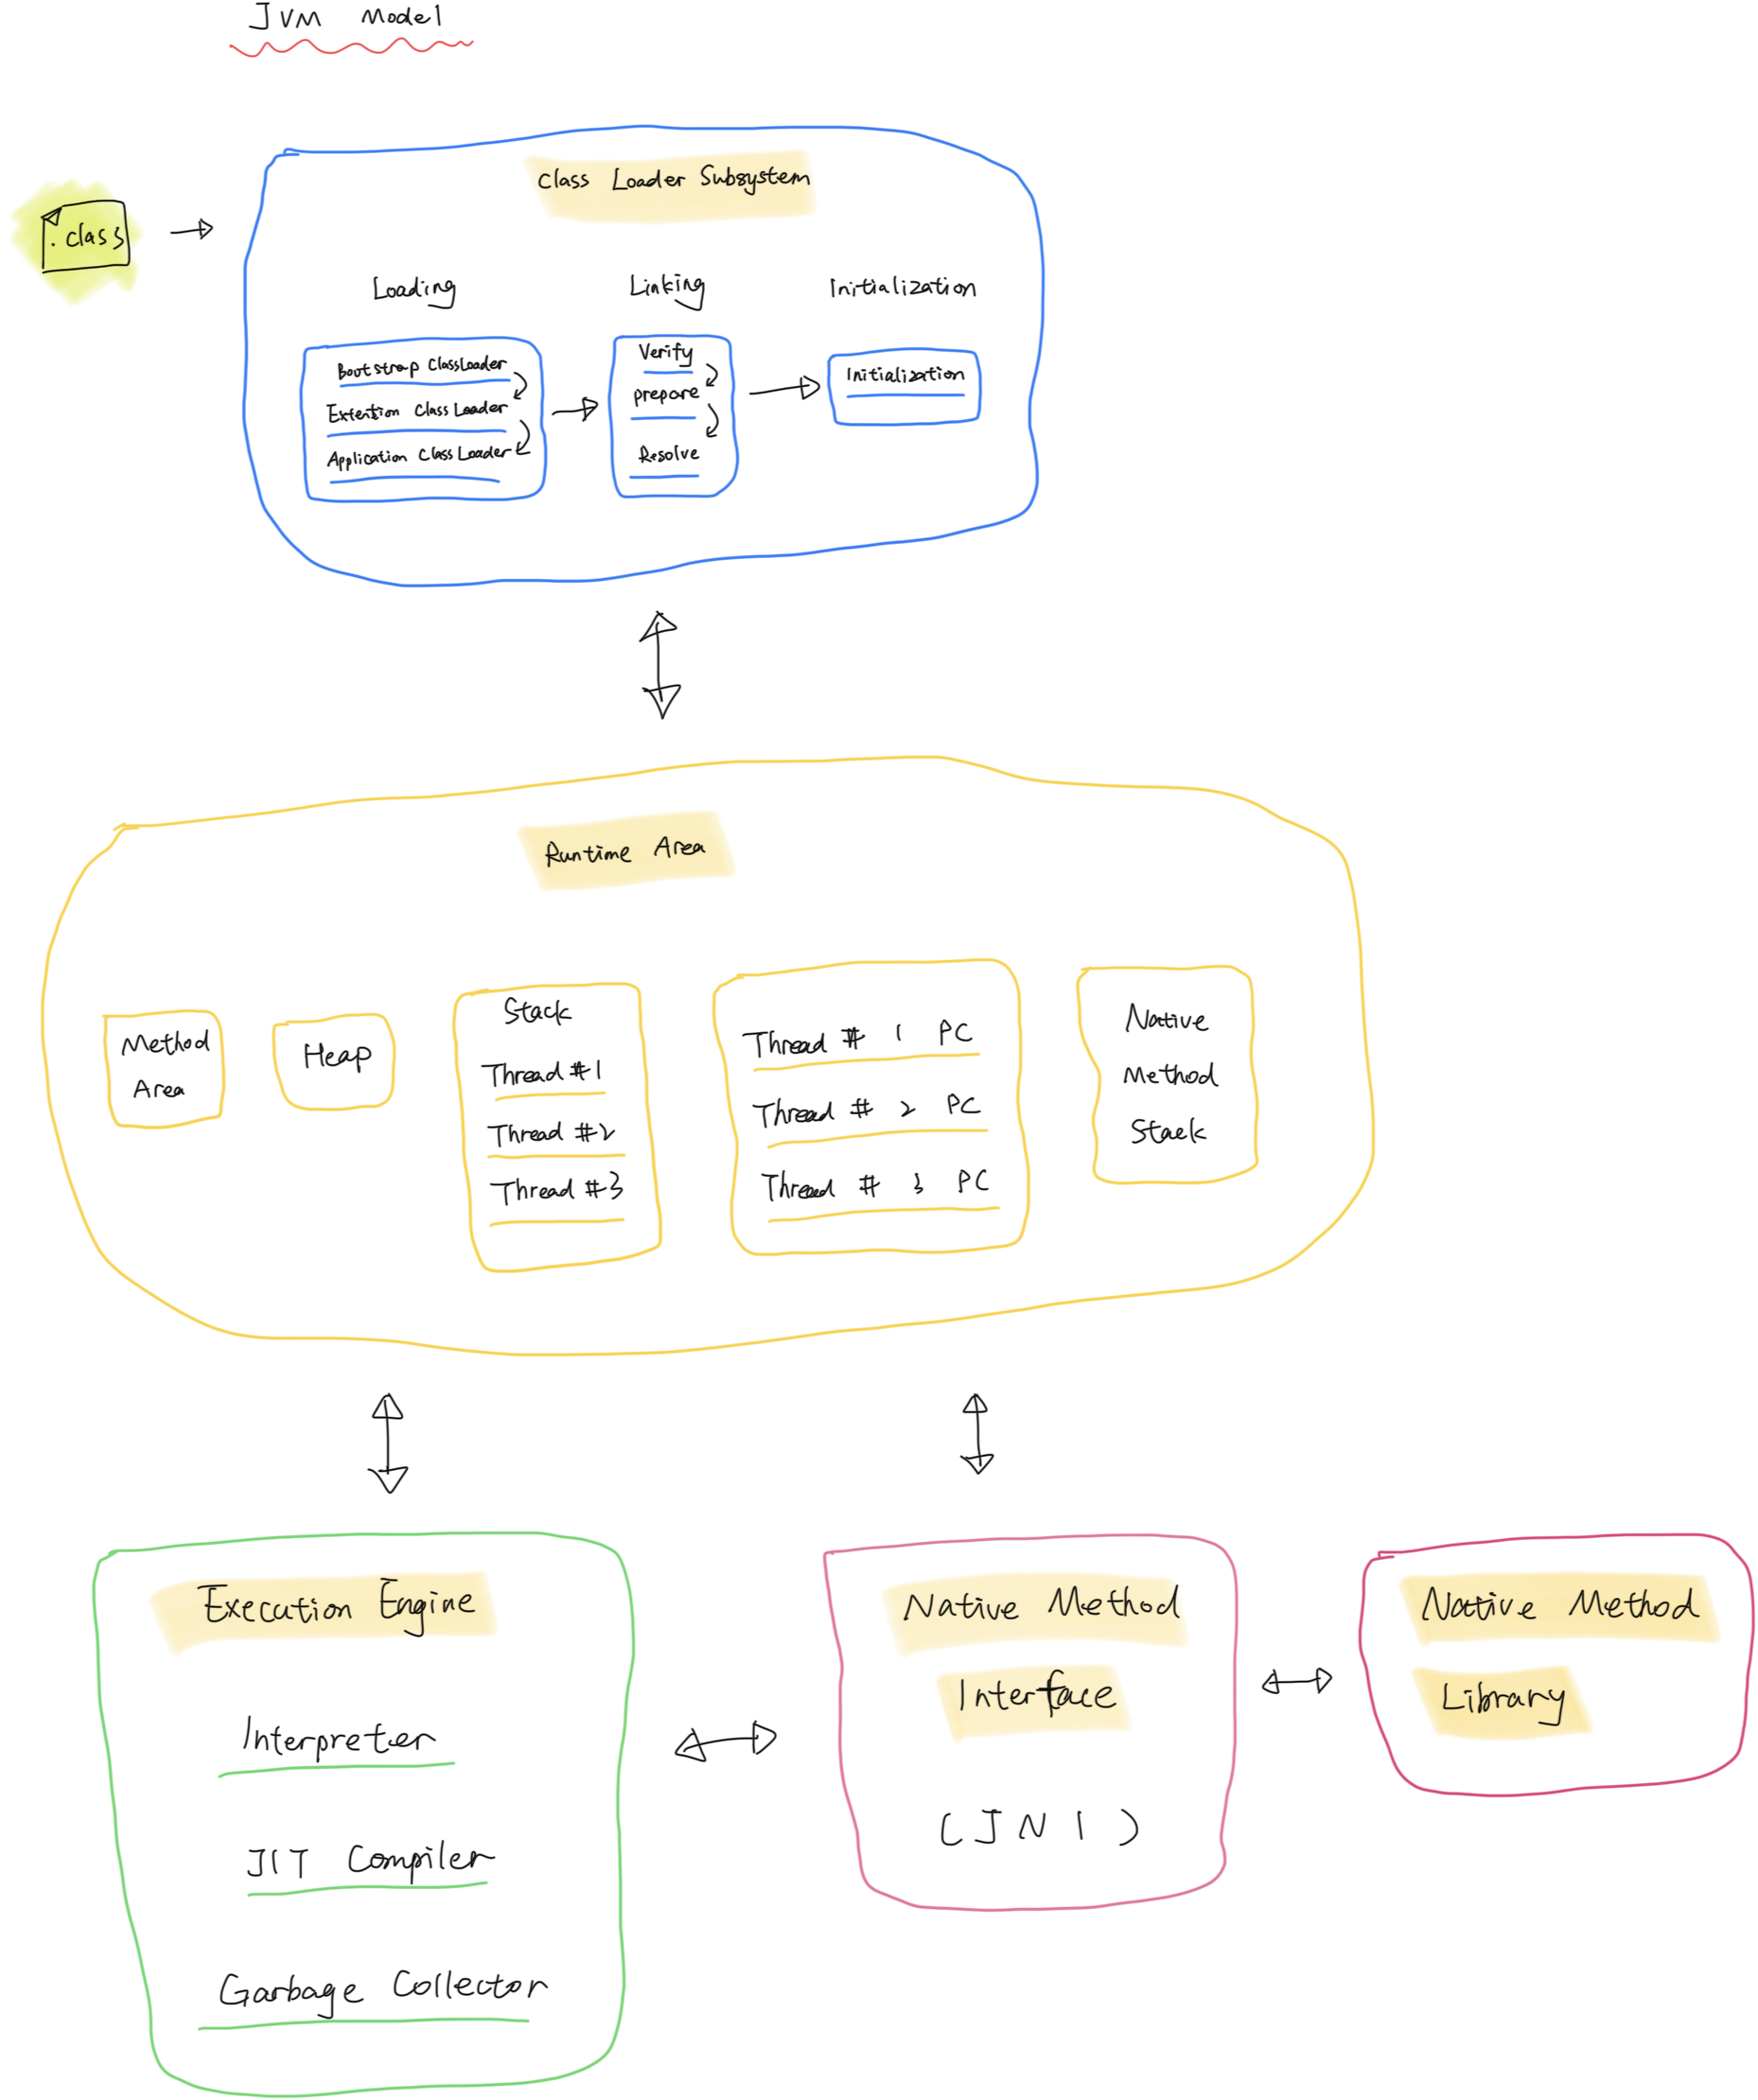 JVM Model
.class
Class Loader Subsystem
Loading
Linking
Initialization
Bootstrap ClassLoader
Extention ClassLoader
Application ClassLoader
Verify
prepare
Resolve
Initialization
Runtime Area
Method
Area
Heap
Stack
Thread #1
Thread #2
Thread #3
Thread # 1 PC
Thread # 2 PC
Thread # 3 PC
Native
Method
Stack
Execution Engine
Interpreter
JIT Compiler
Garbage Collector
Native Method
Interface
(JNI)
Native Method
Library